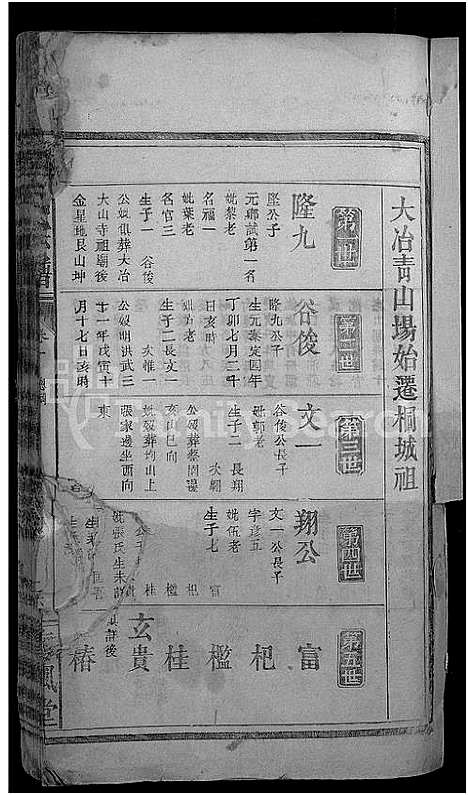 大冶青山場始遷桐城祖
第一世
隆九
墜公子
元鄉試第一名
妣黎老
名福一
妣葉老
名官三
生子一 谷俊
公妣俱葬大冶
大山寺祖廟後
金星地艮山坤
第二世
谷俊
隆九公子
生元泰定四年
丁卯七月二十
日亥時
生子二長文一
次椎一
公歿明洪武三
十一年戊寅十
月十七日亥時
第三世
文一
谷俊公長子
妣郭老
生子二 長翔
次朝
亥山巳向
妣歿葬均山上
張家邊坐西向
東
第四世
翔公
文一公長子
字彥五
妣伍老
生子七
富
杞
檻
桂
第五世
富
杞
檻
桂
玄貴
椿
鳳堂
FamilySearch